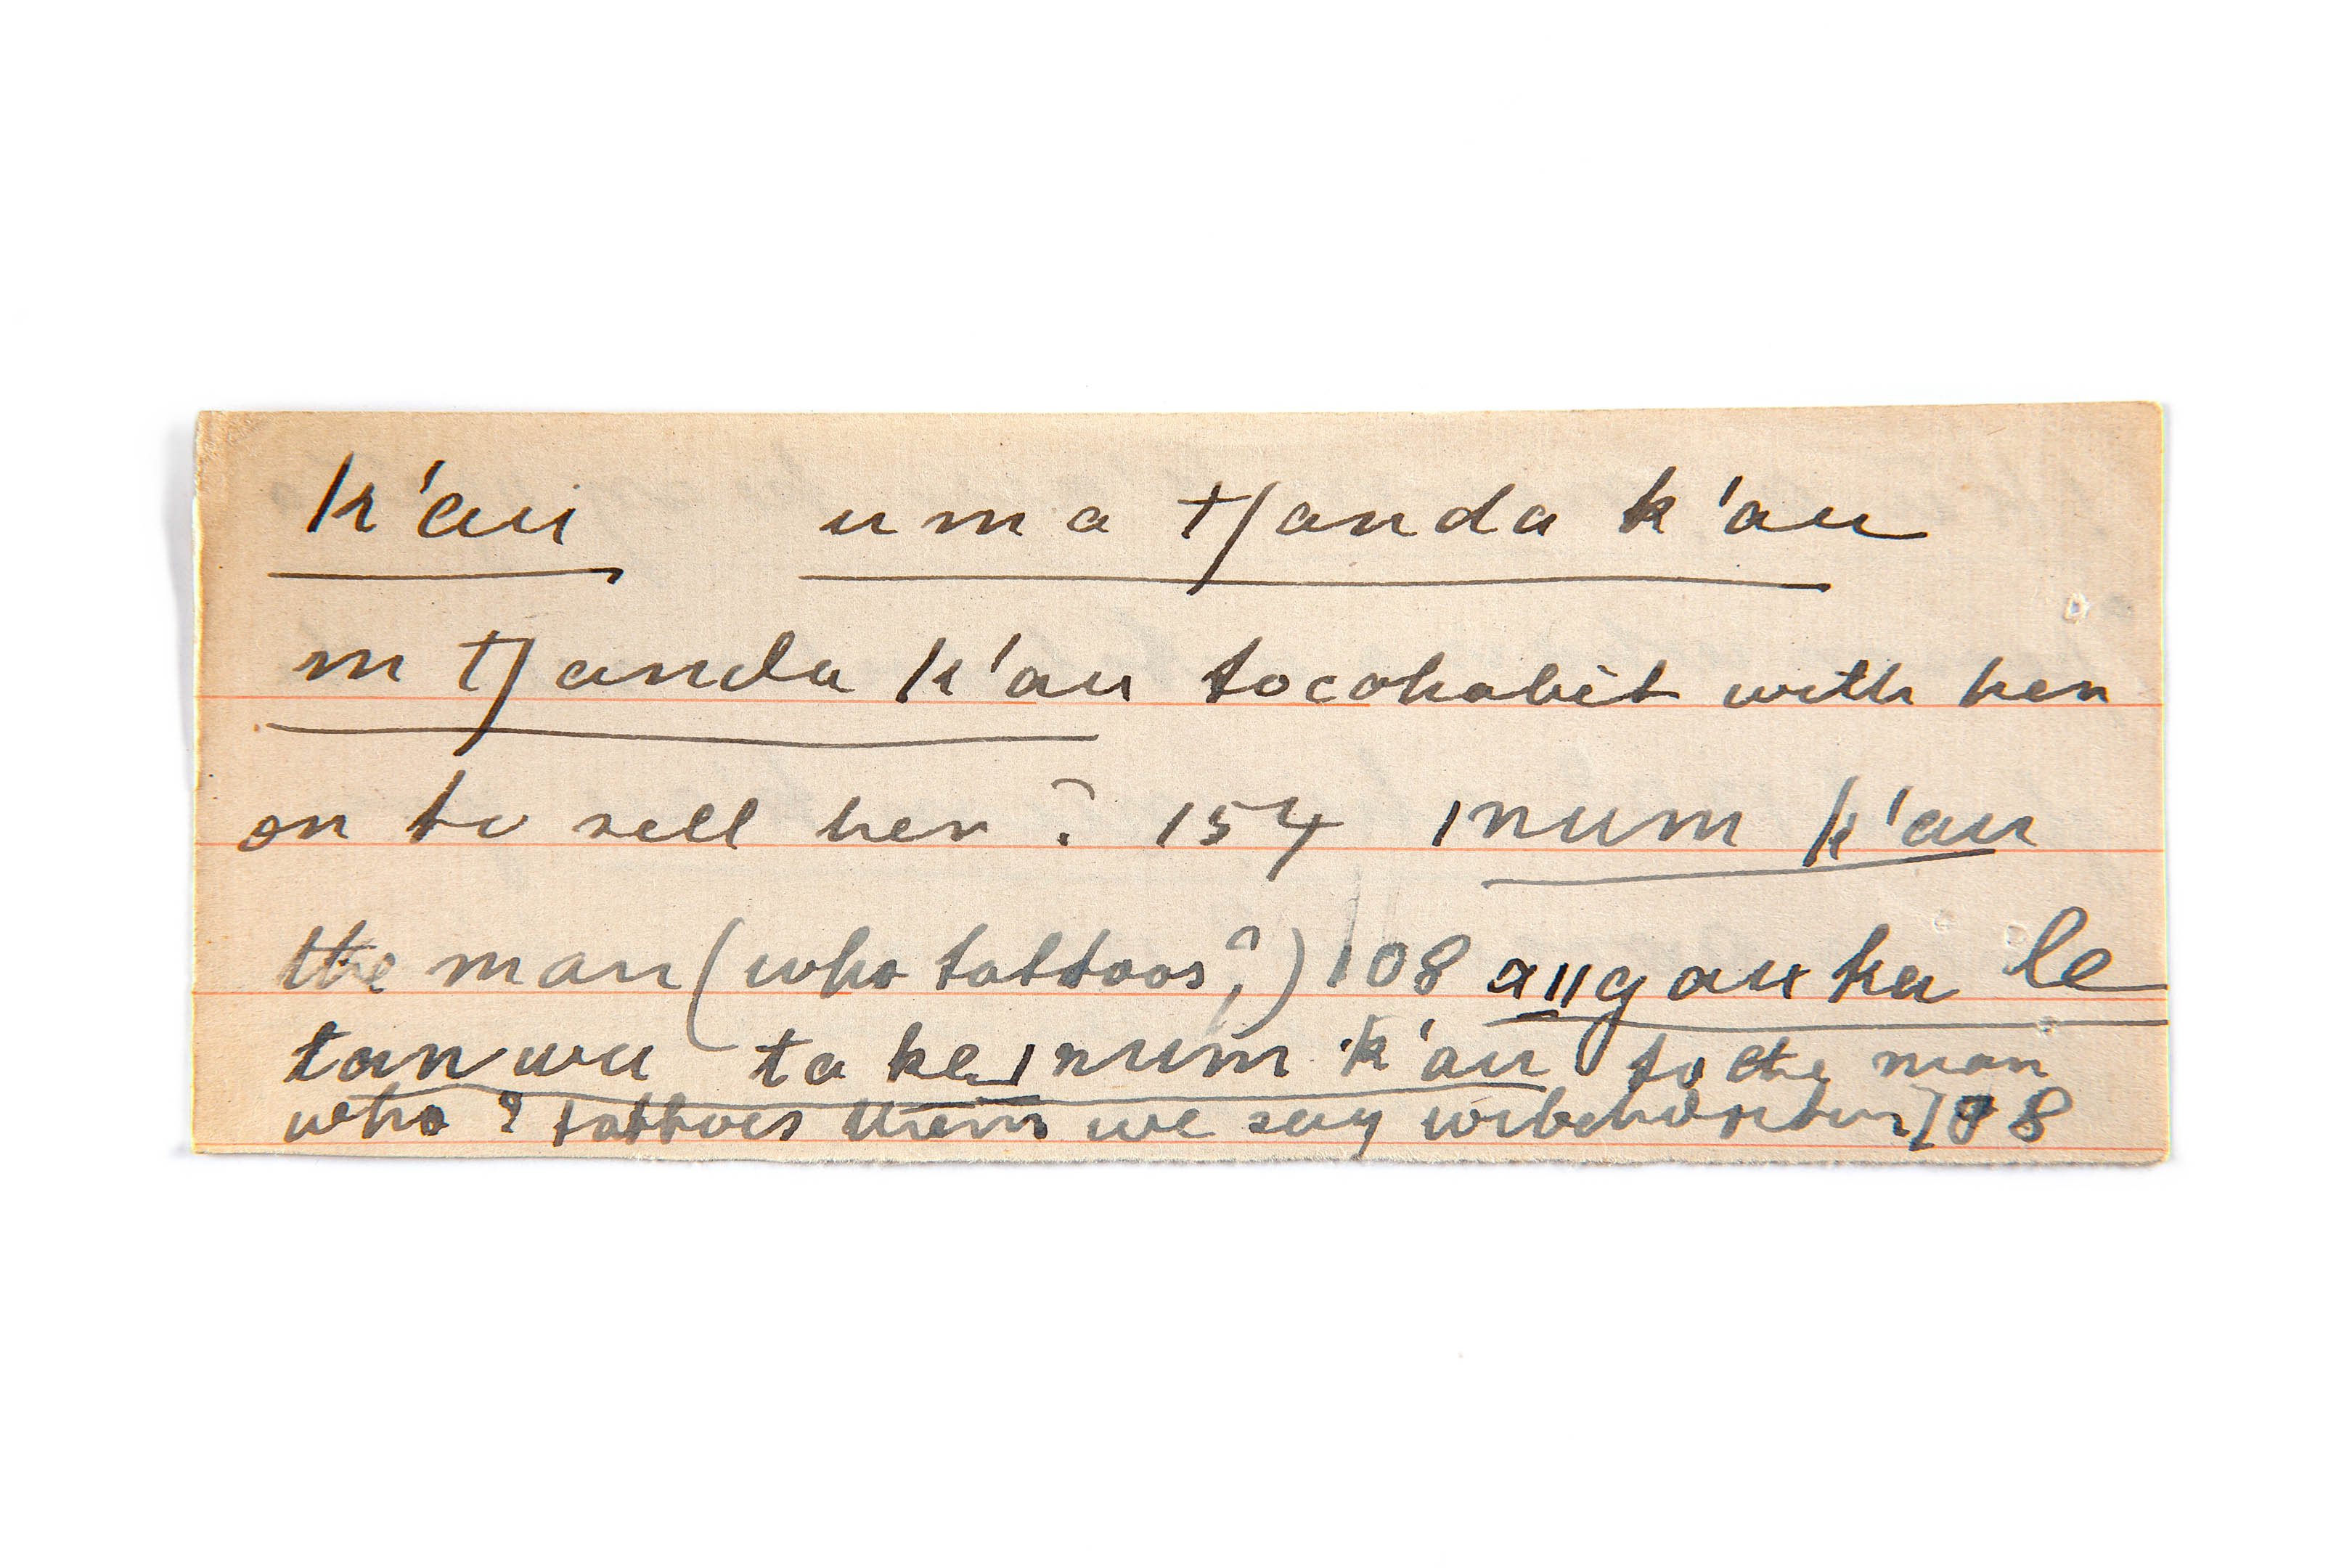 k'au uma tʃanda k'au
m tʃanda k'au to cohabit with her
or to sell her? 154 ınum k'au
the man (who tattoos?) 108 aŋgauka le
tanwu ta ke ınum k'au to the man
who ? tattoes them we say 108